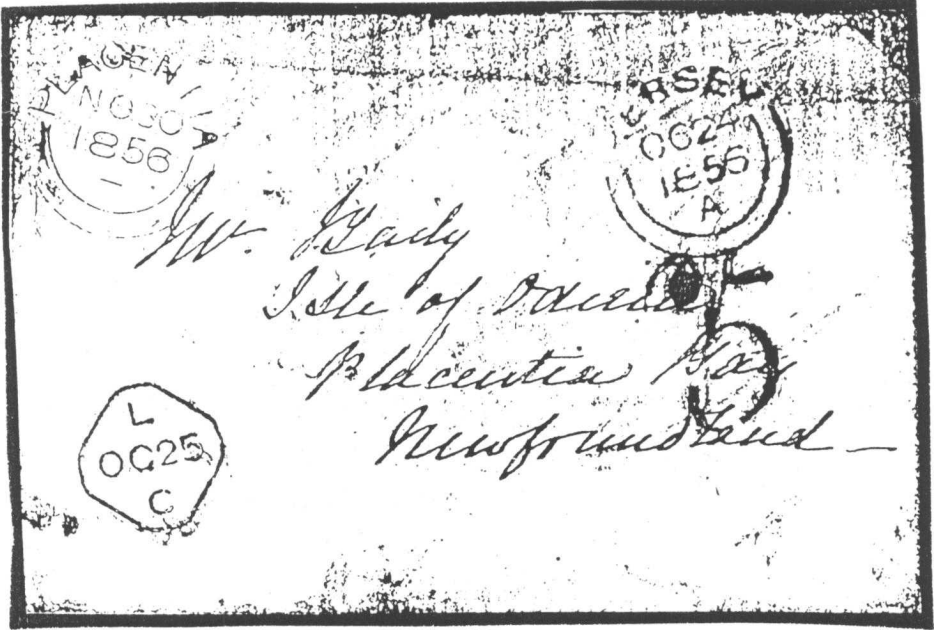 PLACENTIA
NO30
1856
JERSEY
OC24
1856
A
Mr. Baily
Isle of Oderin
Placentia Bay
Newfoundland
L
OC25
C